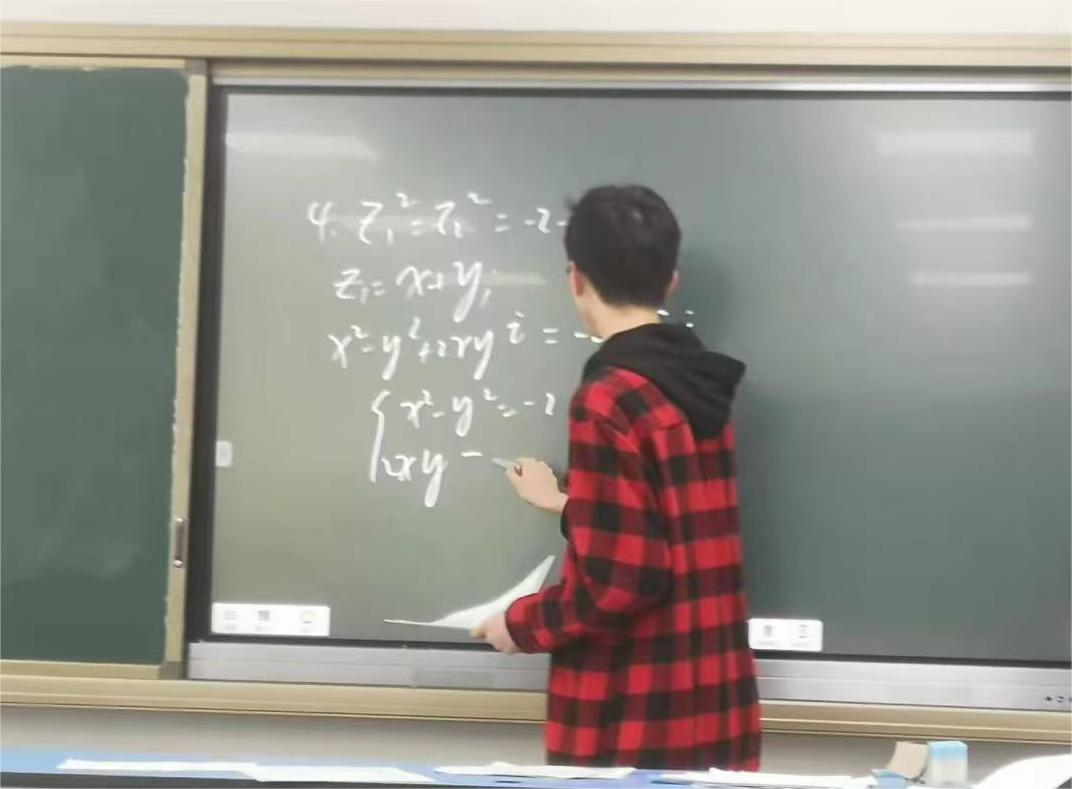 4. z₁² = z₂² = -2-
z₁ = x+yi
x²-y²+2xyi = -2 i
x²-y² = -2
2xy =